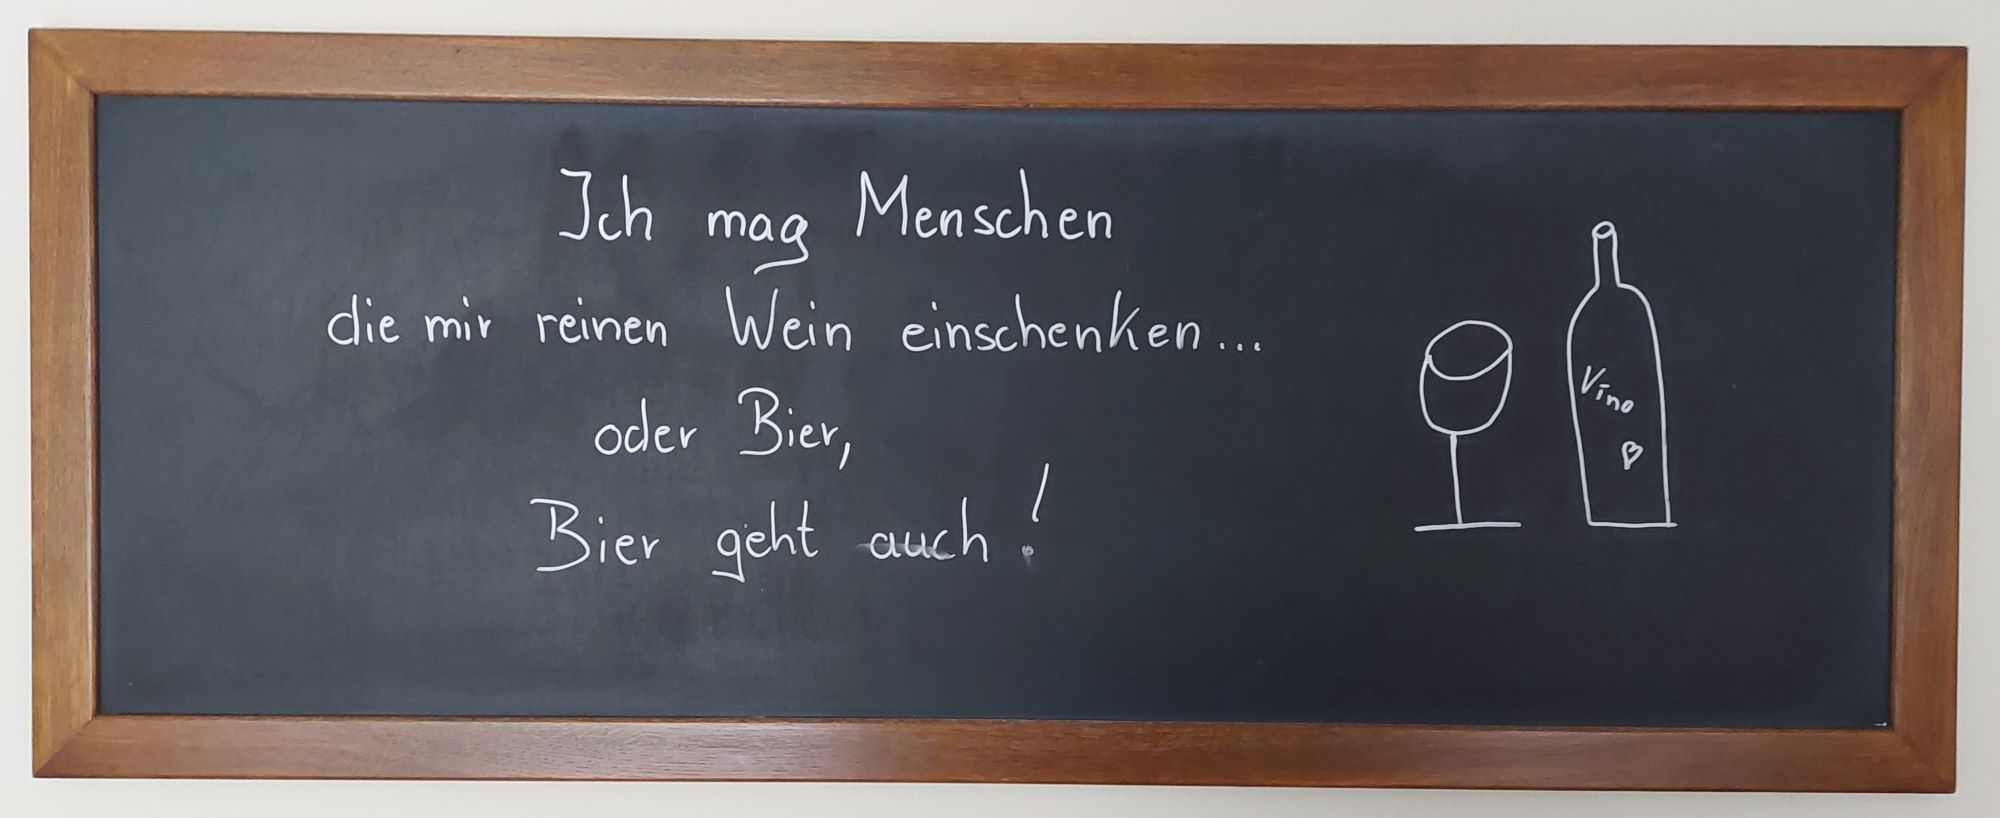 Ich mag Menschen
die mir reinen Wein einschenken...
oder Bier,
Bier geht auch!
Vino